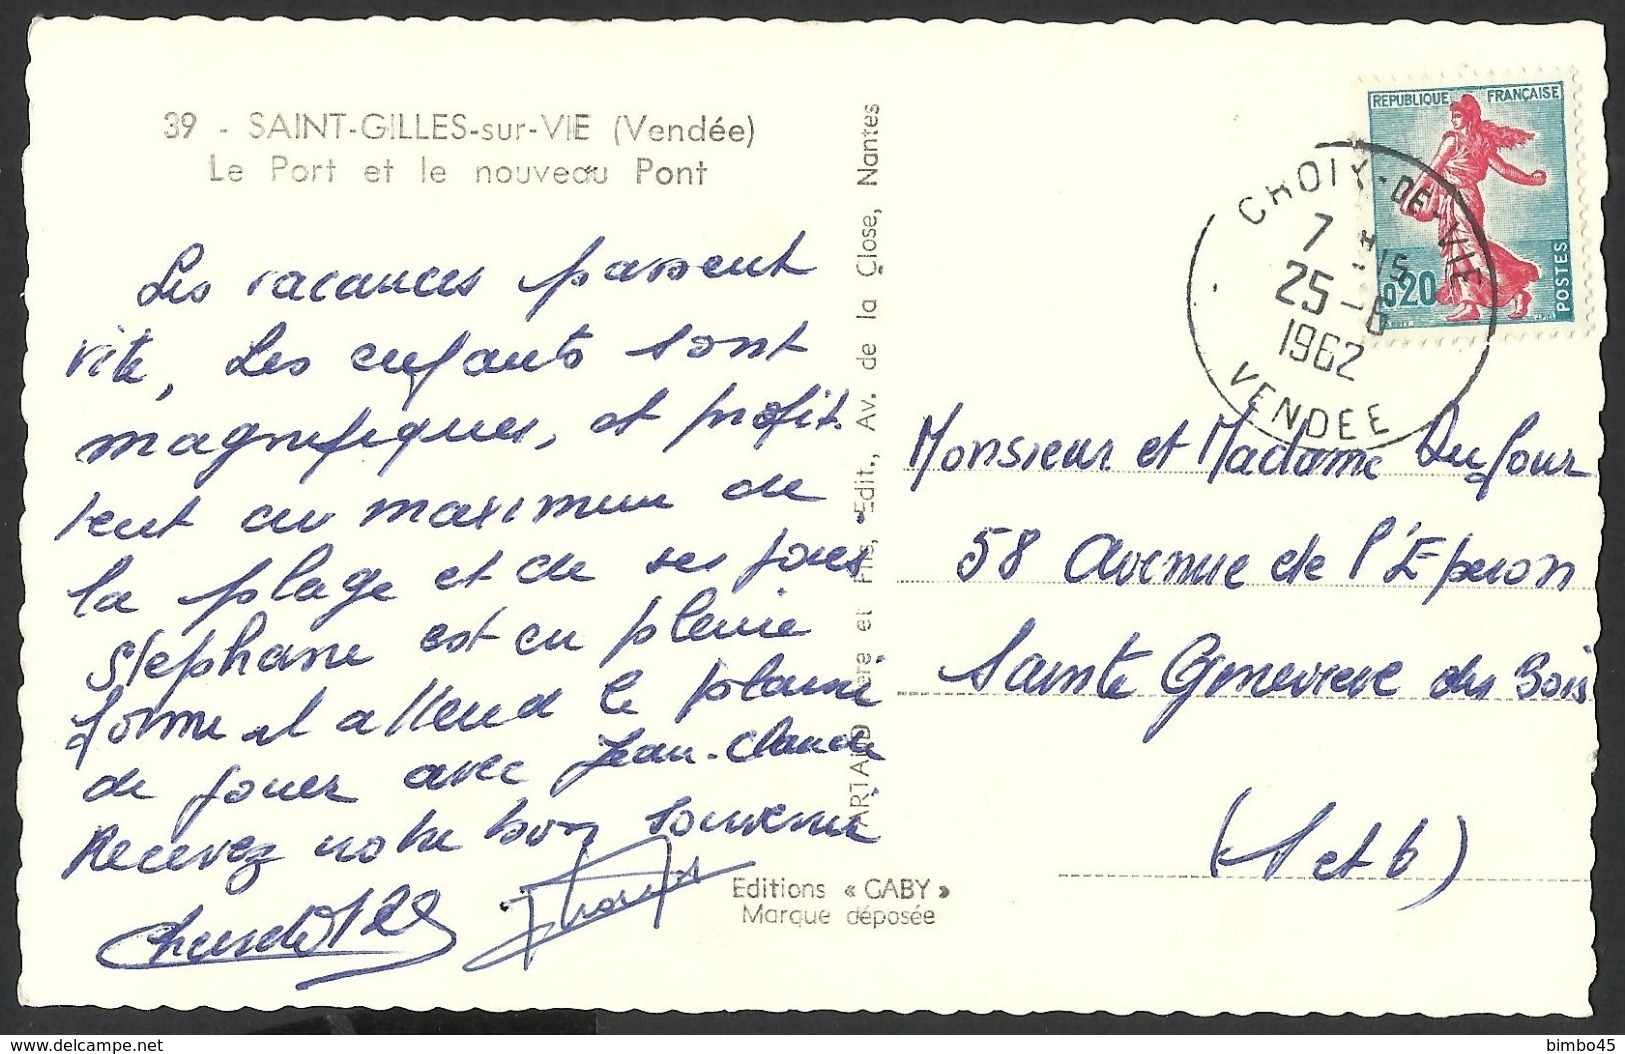 39 - SAINT-GILLES-sur-VIE (Vendée)
Le Port et le nouveau Pont
Les vacances passent
vite, Les enfants sont
magnifiques, et profit-
tent au maximum de
la plage et de ses joies
Stephane est en pleine
forme il attend le plaisir
de jouer avec Jean-Claude
Recevez notre bon souvenir
Editions « GABY »
Marque déposée
ARTAUD Père et Fils, Edit., Av. de la Close, Nantes
REPUBLIQUE FRANÇAISE
0,20
POSTES
CROIX-DE-VIE
7 H 15
25-6
1962
VENDEE
Monsieur et Madame Dufour
58 Avenue de l'Eperon
Sainte Genevieve des Bois
(S et O)
delcampe.net
bimbo45